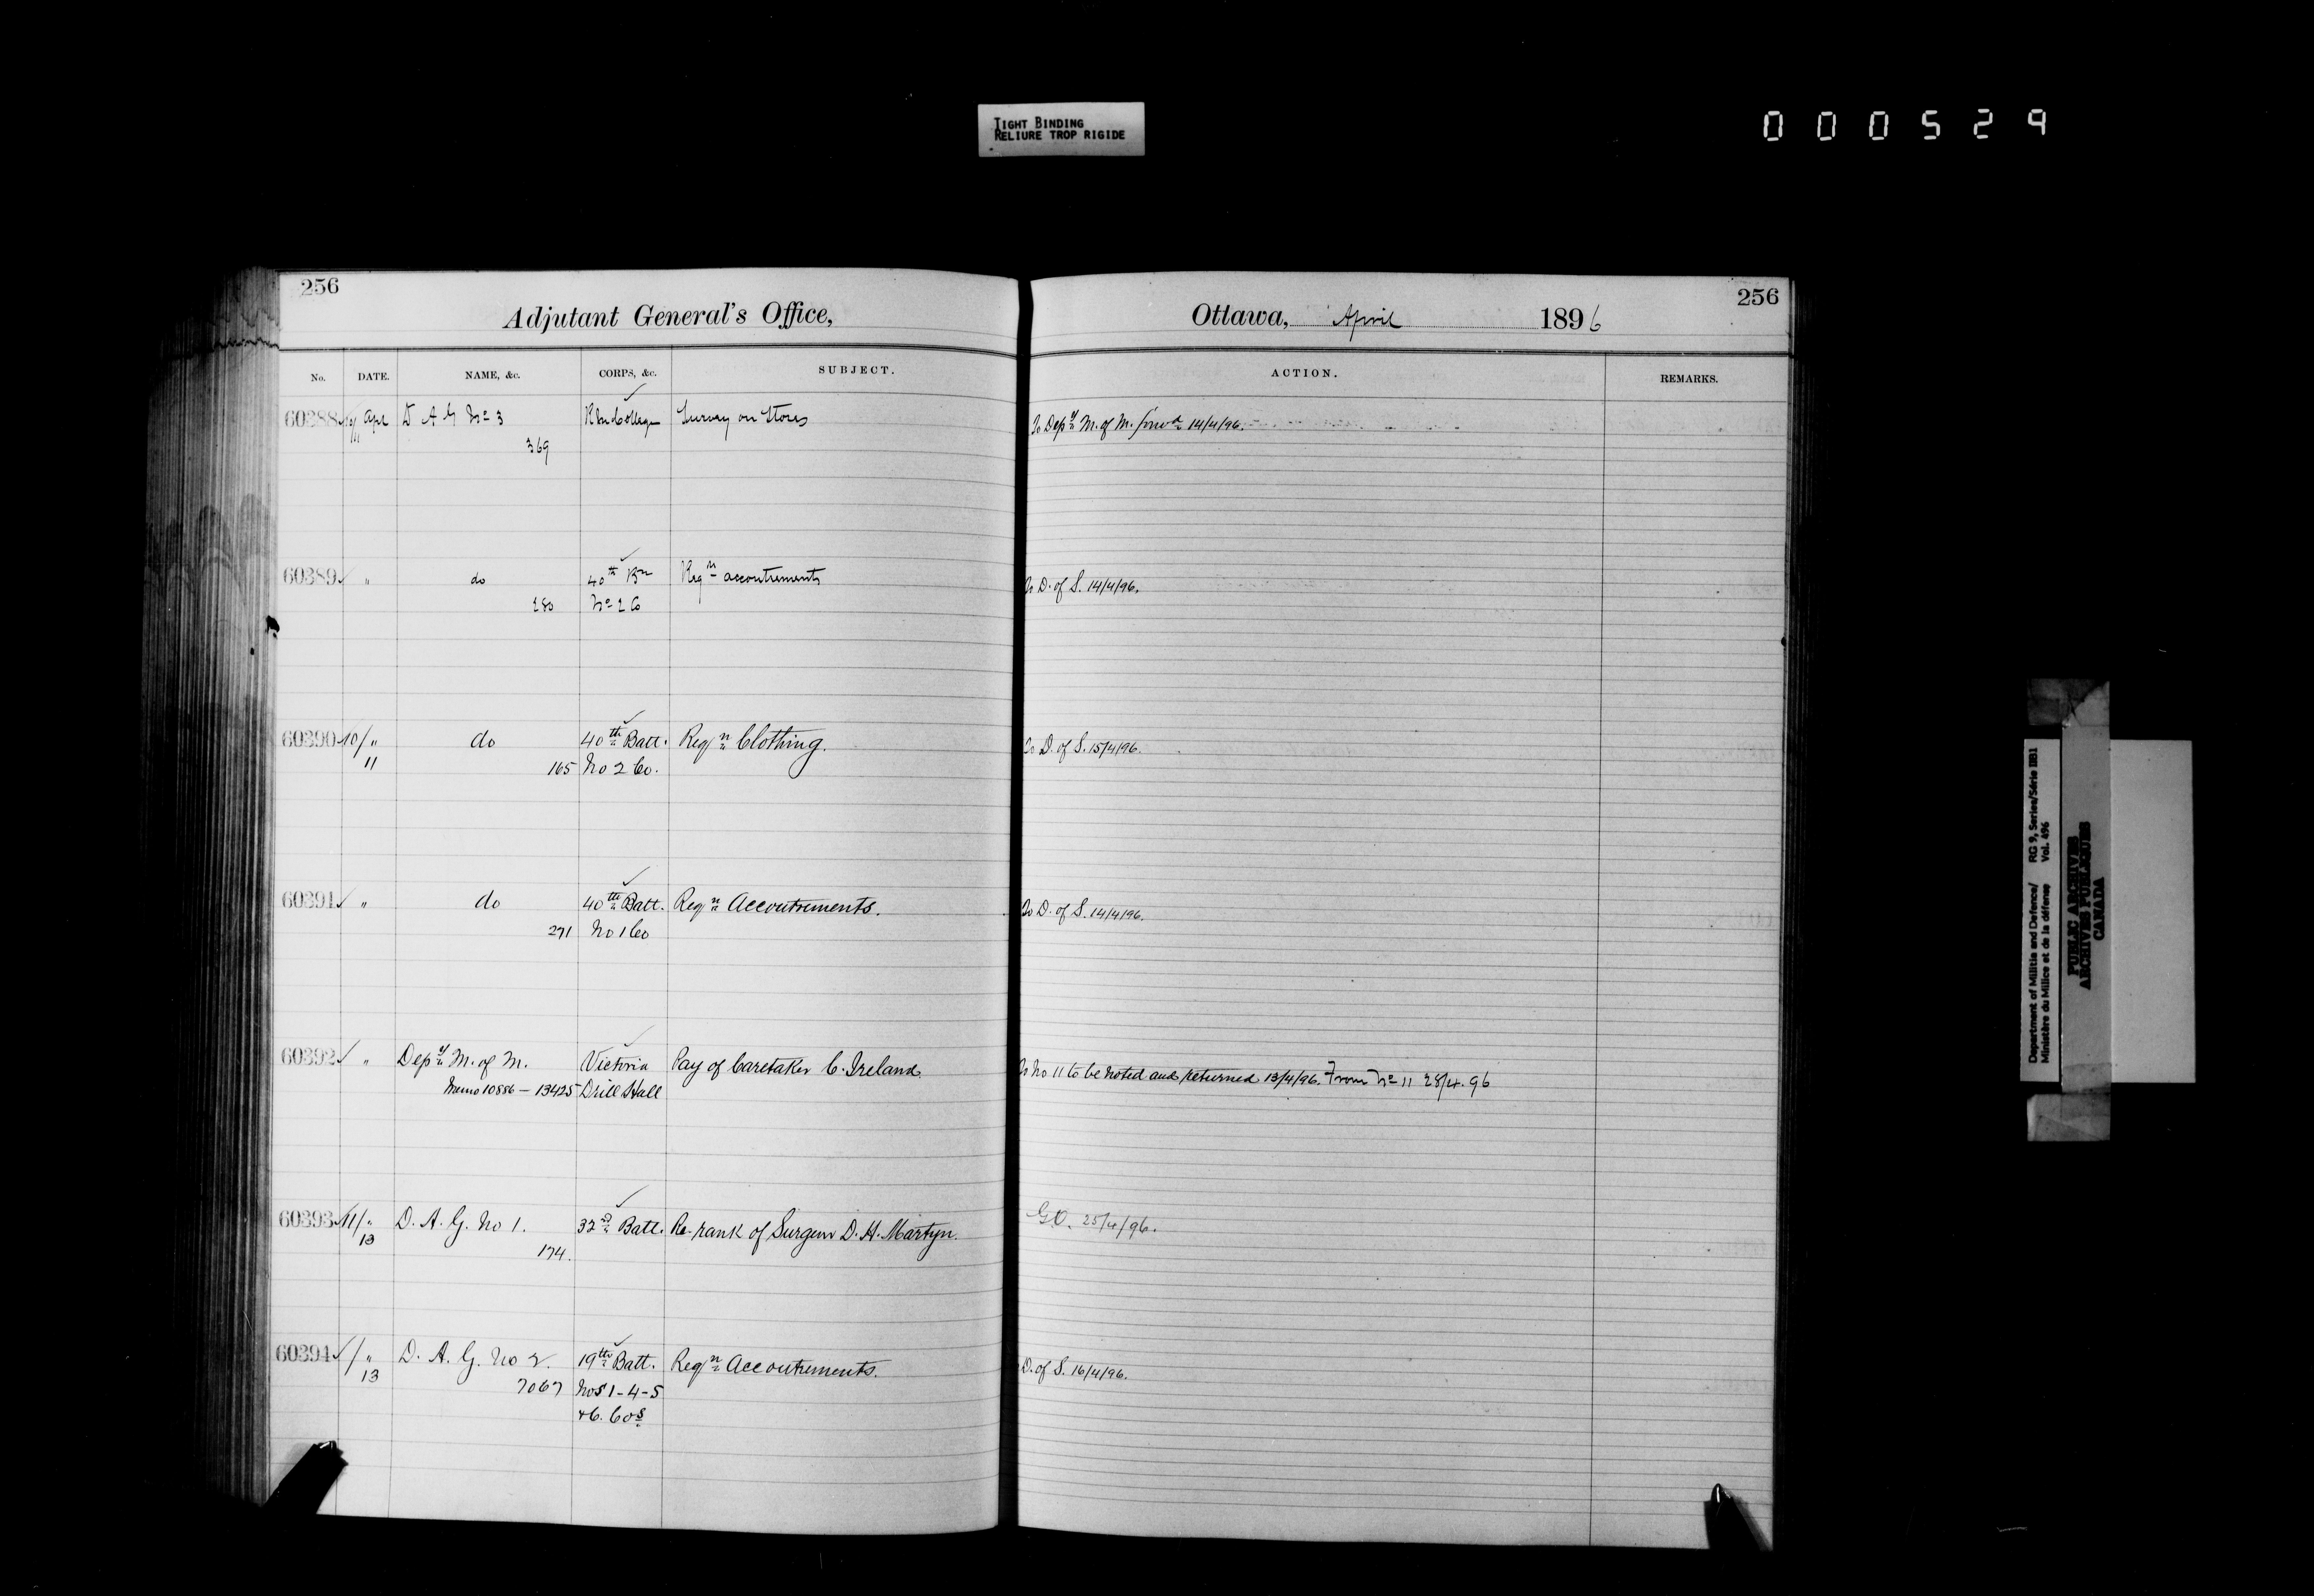 TIGHT BINDING
RELIURE TROP RIGIDE
000529
256
Adjutant General's Office,
No. DATE. NAME, &c. CORPS, &c. SUBJECT.
60388 10/11 Apl D A G No 3 R M College Survey on Stores
369
60389 " do 40th Bn Reqn accoutrements
280 No 2 Co
60390 10/11 " do 40th Batt. Reqn Clothing.
165 No 2 Co.
60391 " do 40th Batt. Reqn Accoutrements.
271 No 1 Co
60392 " Depy M. of M. Victoria Pay of Caretaker C. Ireland
Memo 10886 – 13425 Drill Hall
60393 11/13 " D. A. G. No 1. 32nd Batt. Re-rank of Surgeon D. H. Martyn.
174.
60394 /13 " D. A. G. No 2. 19th Batt. Reqn Accoutrements.
7067 Nos 1-4-5
+6. Cos
256
Ottawa, April 1896
ACTION. REMARKS.
To Depy M. of M. 14/4/96.
To D. of S. 14/4/96.
To D. of S. 15/4/96.
To D. of S. 14/4/96.
To No 11 to be noted and returned 13/4/96. From No 11 28/4.96
GO. 25/4/96.
D. of S. 16/4/96.
Department of Militia and Defence/ RG 9, Series/Série IIB1
Ministère du Milice et de la défense Vol. 496
PUBLIC ARCHIVES
ARCHIVES PUBLIQUES
CANADA